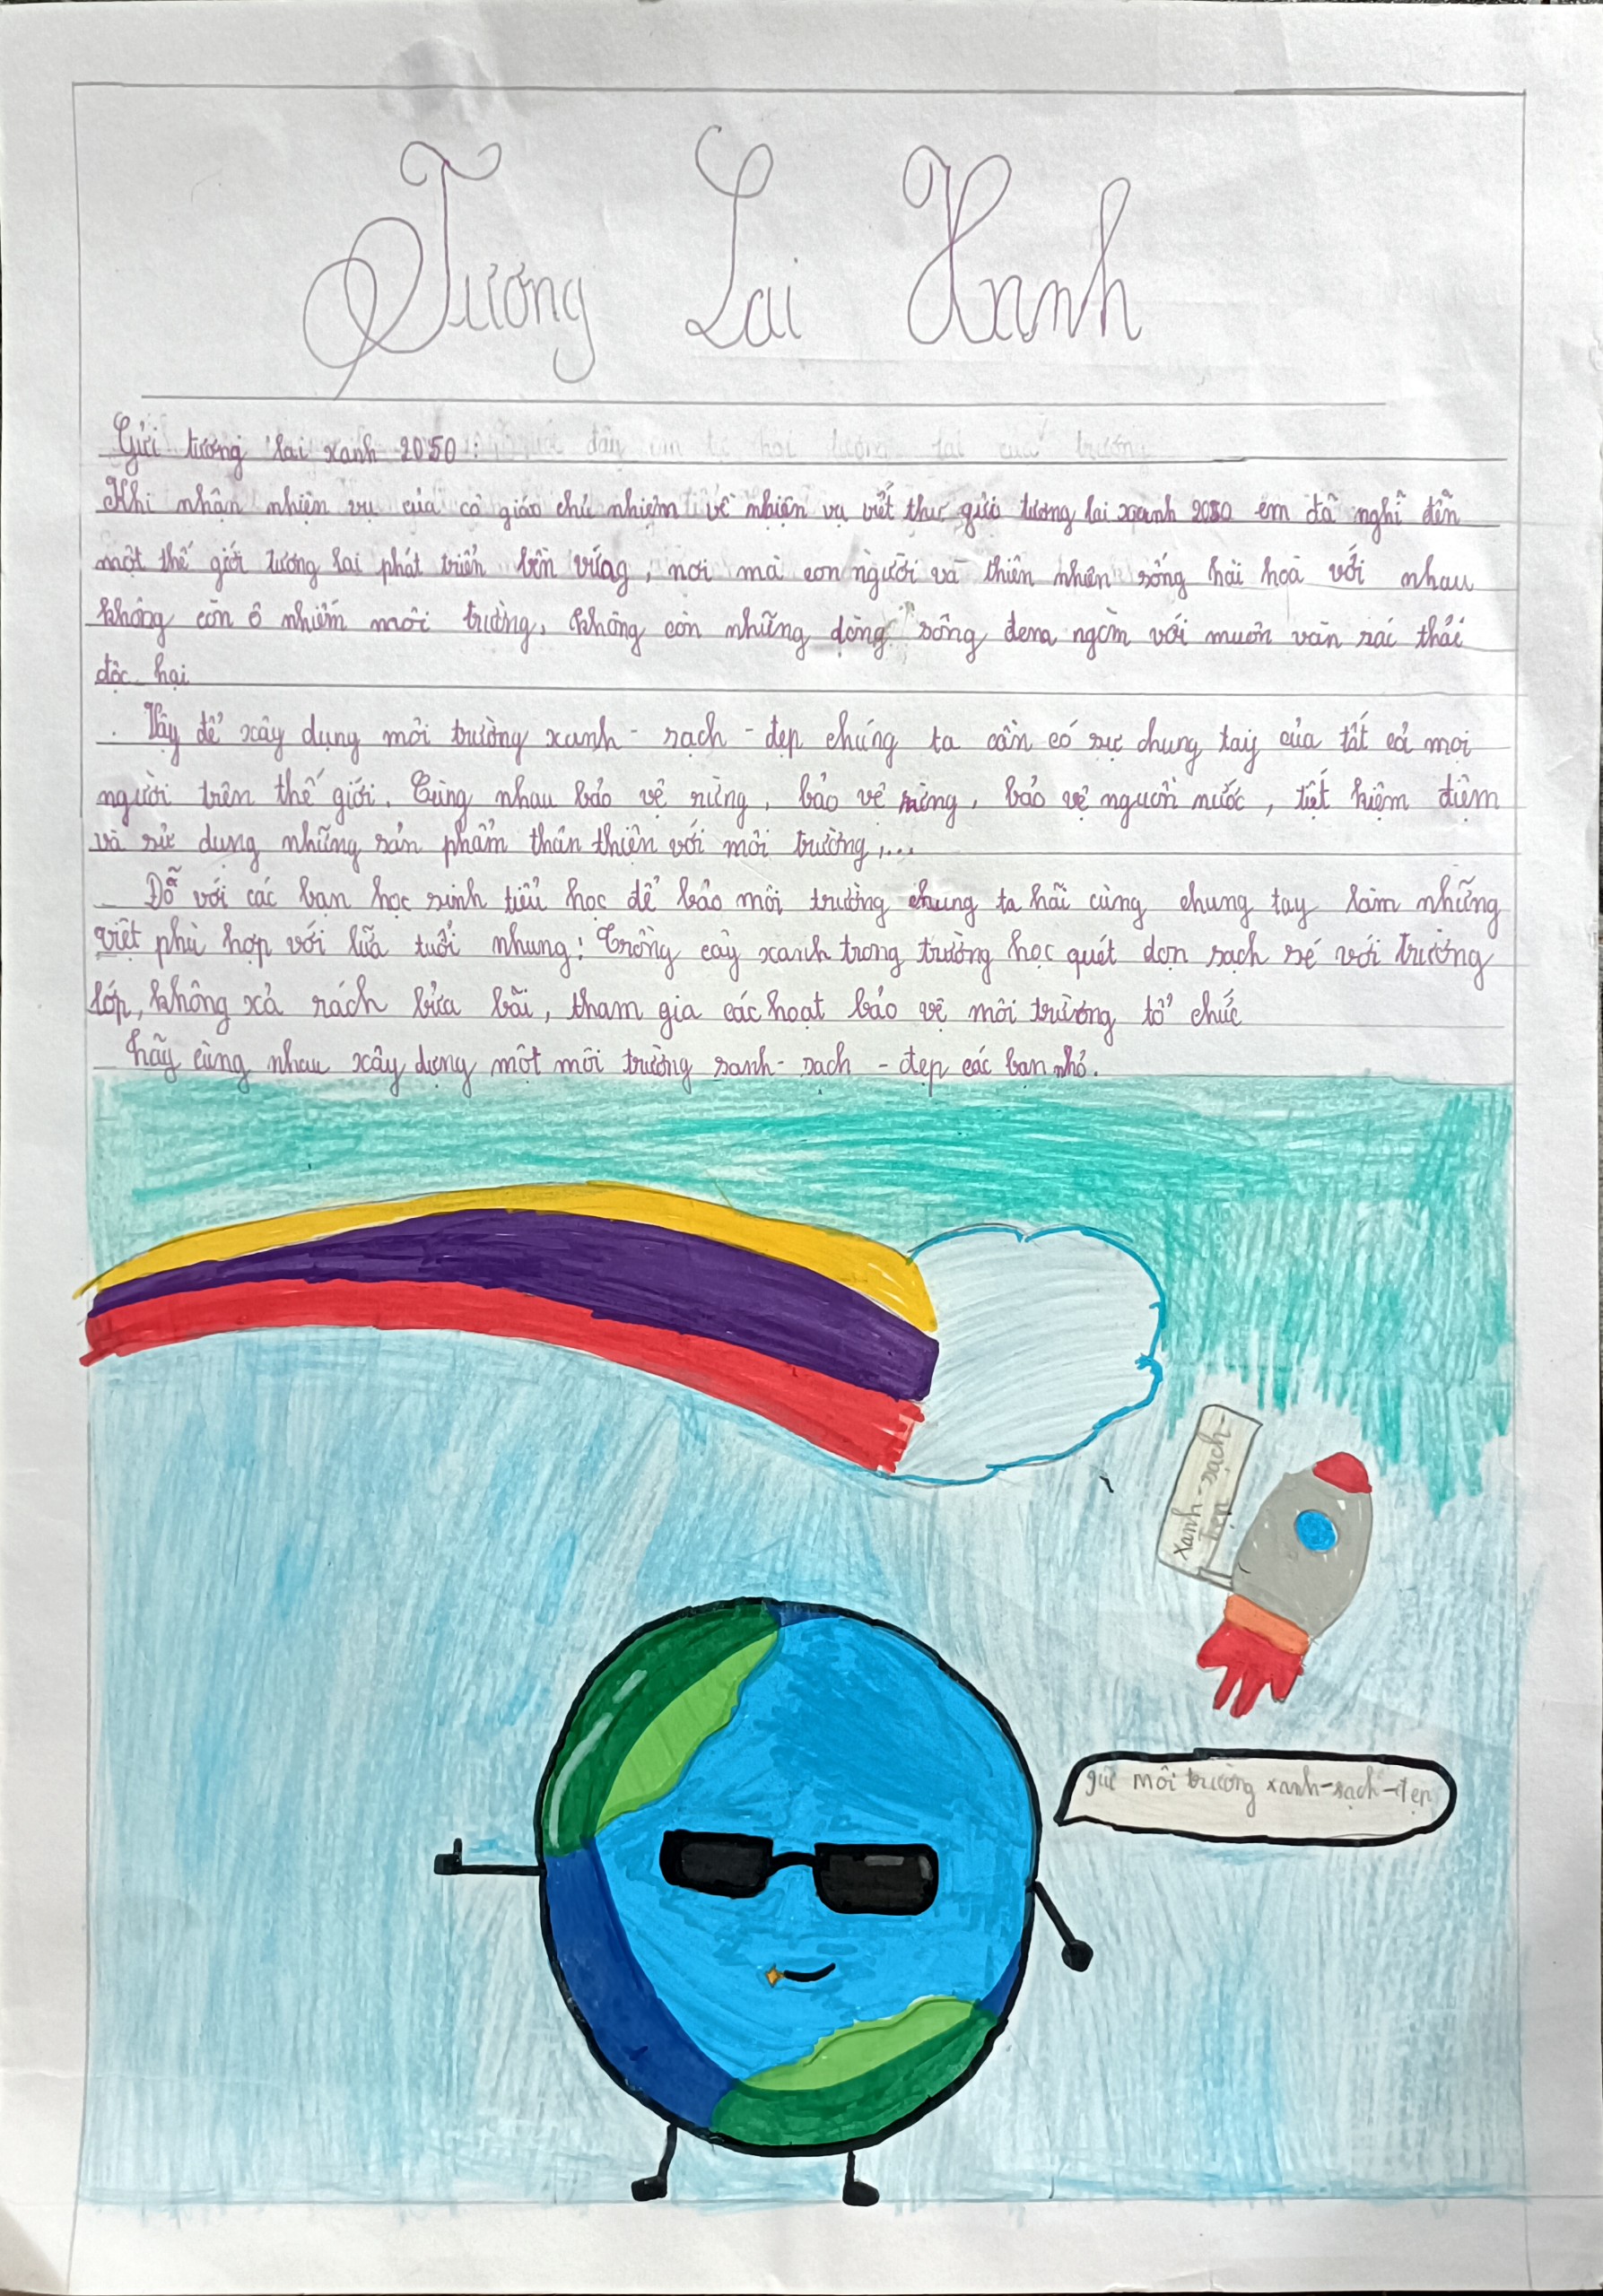 Tương Lai Xanh
Gửi tương lai xanh 2050:
Khi nhận nhiện vụ của cô giáo chủ nhiệm về nhiện vụ viết thư gửi tương lai xoanh 2050 em đã nghĩ đến
một thế giới tương lai phát triển bền vững, nơi mà con người và thiên nhiên sống hài hoà với nhau
không còn ô nhiễm môi trường, không còn những dòng sông đem ngòm với muôn vàn rác thải
độc hại
. Vậy để xây dựng môi trường xanh - sạch - đẹp chúng ta cần có sự chung tay của tất cả mọi
người trên thế giới. Cùng nhau bảo vệ rừng, bảo vệ rừng, bảo vệ nguồn nước, tiết kiệm điệm
và sử dụng những sản phẩm thân thiện với môi trường,...
Đỗ với các bạn học sinh tiểu học để bảo môi trường chung ta hãi cùng chung tay làm những
việt phù hợp với lứa tuổi nhung: Trồng cây xanh trong trường học quét dọn sạch sẻ với trường
lớp, không xả rách bừa bãi, tham gia các hoạt bảo vệ môi trường tổ chức
hãy cùng nhau xây dựng một môi trường sanh - sạch - đẹp các bạn nhỏ.
xanh-sạch-
đẹp
giữ môi trường xanh-sạch-đẹp